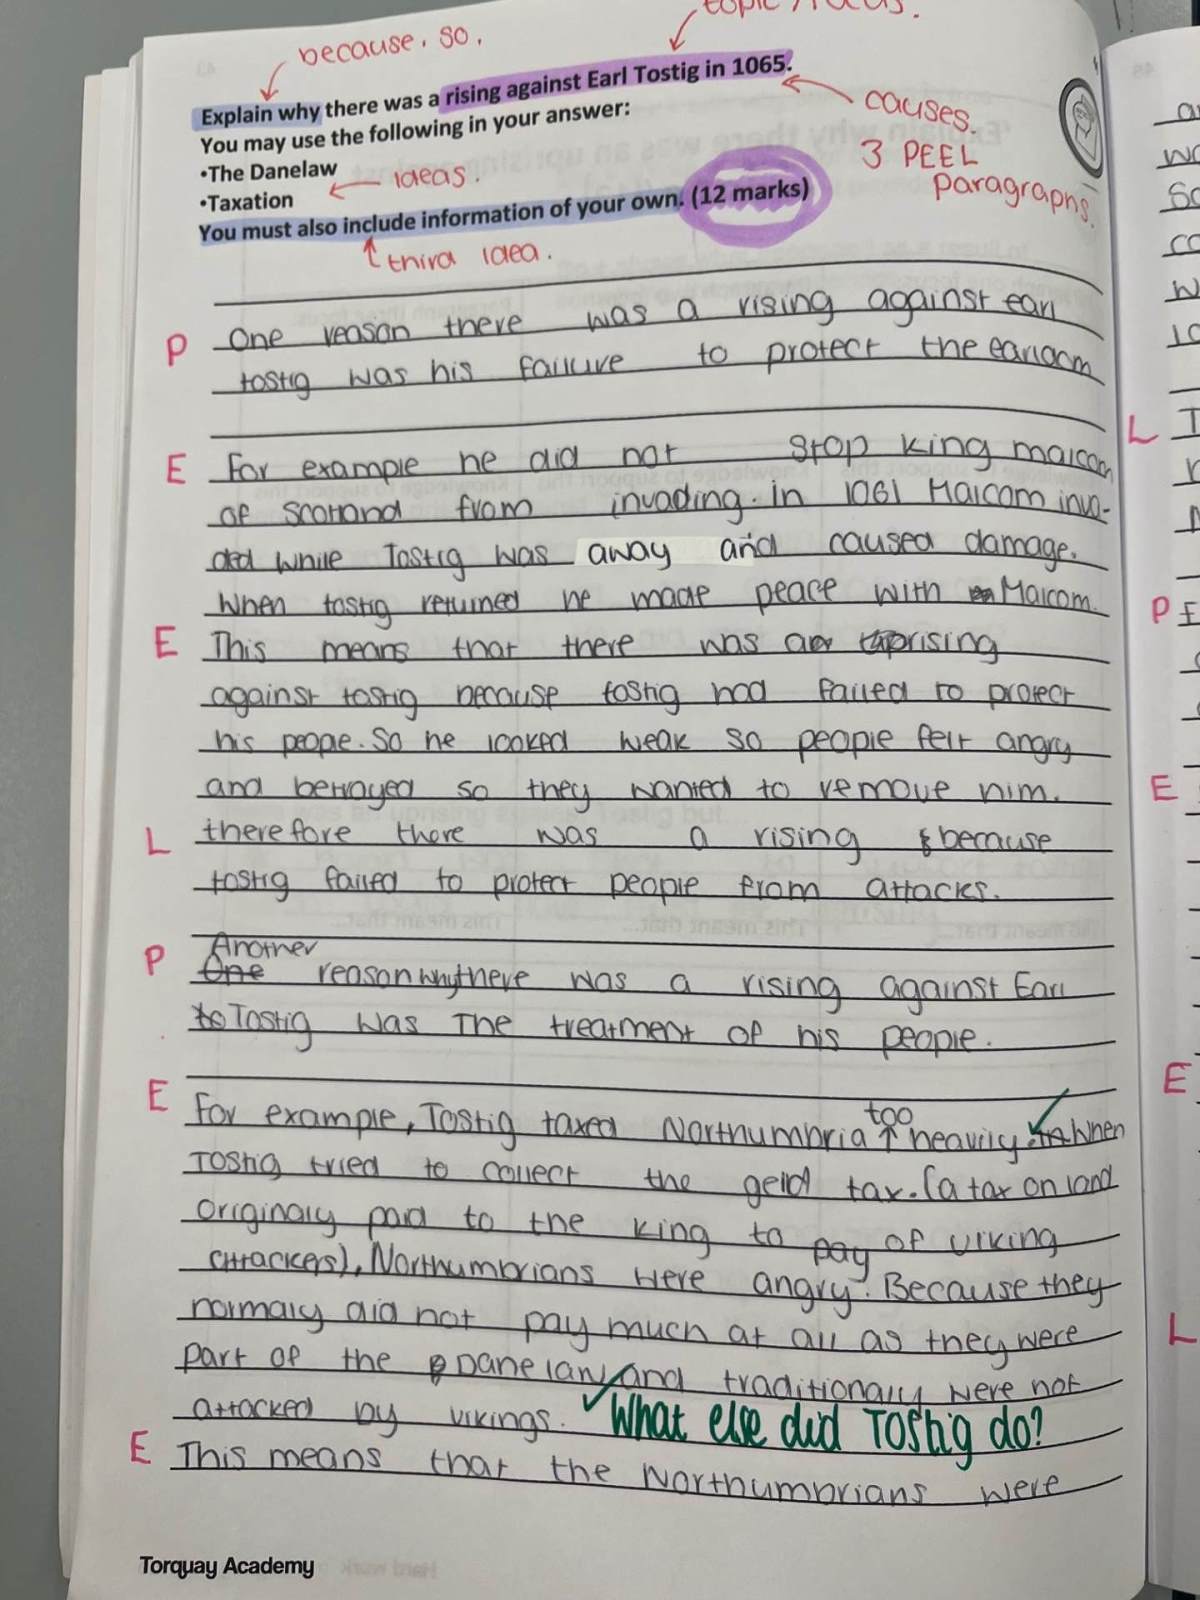 topic / focus.
because. so.
Explain why there was a rising against Earl Tostig in 1065.
You may use the following in your answer:
•The Danelaw
•Taxation
You must also include information of your own. (12 marks)
causes.
3 PEEL
paragraphs.
ideas.
third idea.
P One reason there was a rising against earl
tostig was his failure to protect the earldom
E For example he did not stop king malcom
of scotland from invading. in 1061 Malcom inva-
ded while Tostig was away and caused damage.
When tostig returned he made peace with Malcom.
E This means that there was a uprising
against tostig because tostig had failed to protect
his people. So he looked weak so people felt angry
and betrayed so they wanted to remove him.
L therefore there was a rising because
tostig failed to protect people from attacks.
Another
P One reason why there was a rising against Earl
to Tostig was The treatment of his people.
too
E For example, Tostig taxed Northumbria ↑ heavily. When
Tostig tried to collect the geld tax. (a tax on land
originaly paid to the king to pay of viking
attackers), Northumbrians were angry. Because they
normaly did not pay much at all as they were
part of the Danelaw and traditionally were not
attacked by vikings. What else did Tostig do?
E This means that the Northumbrians were
Torquay Academy
L
P
E
E
L